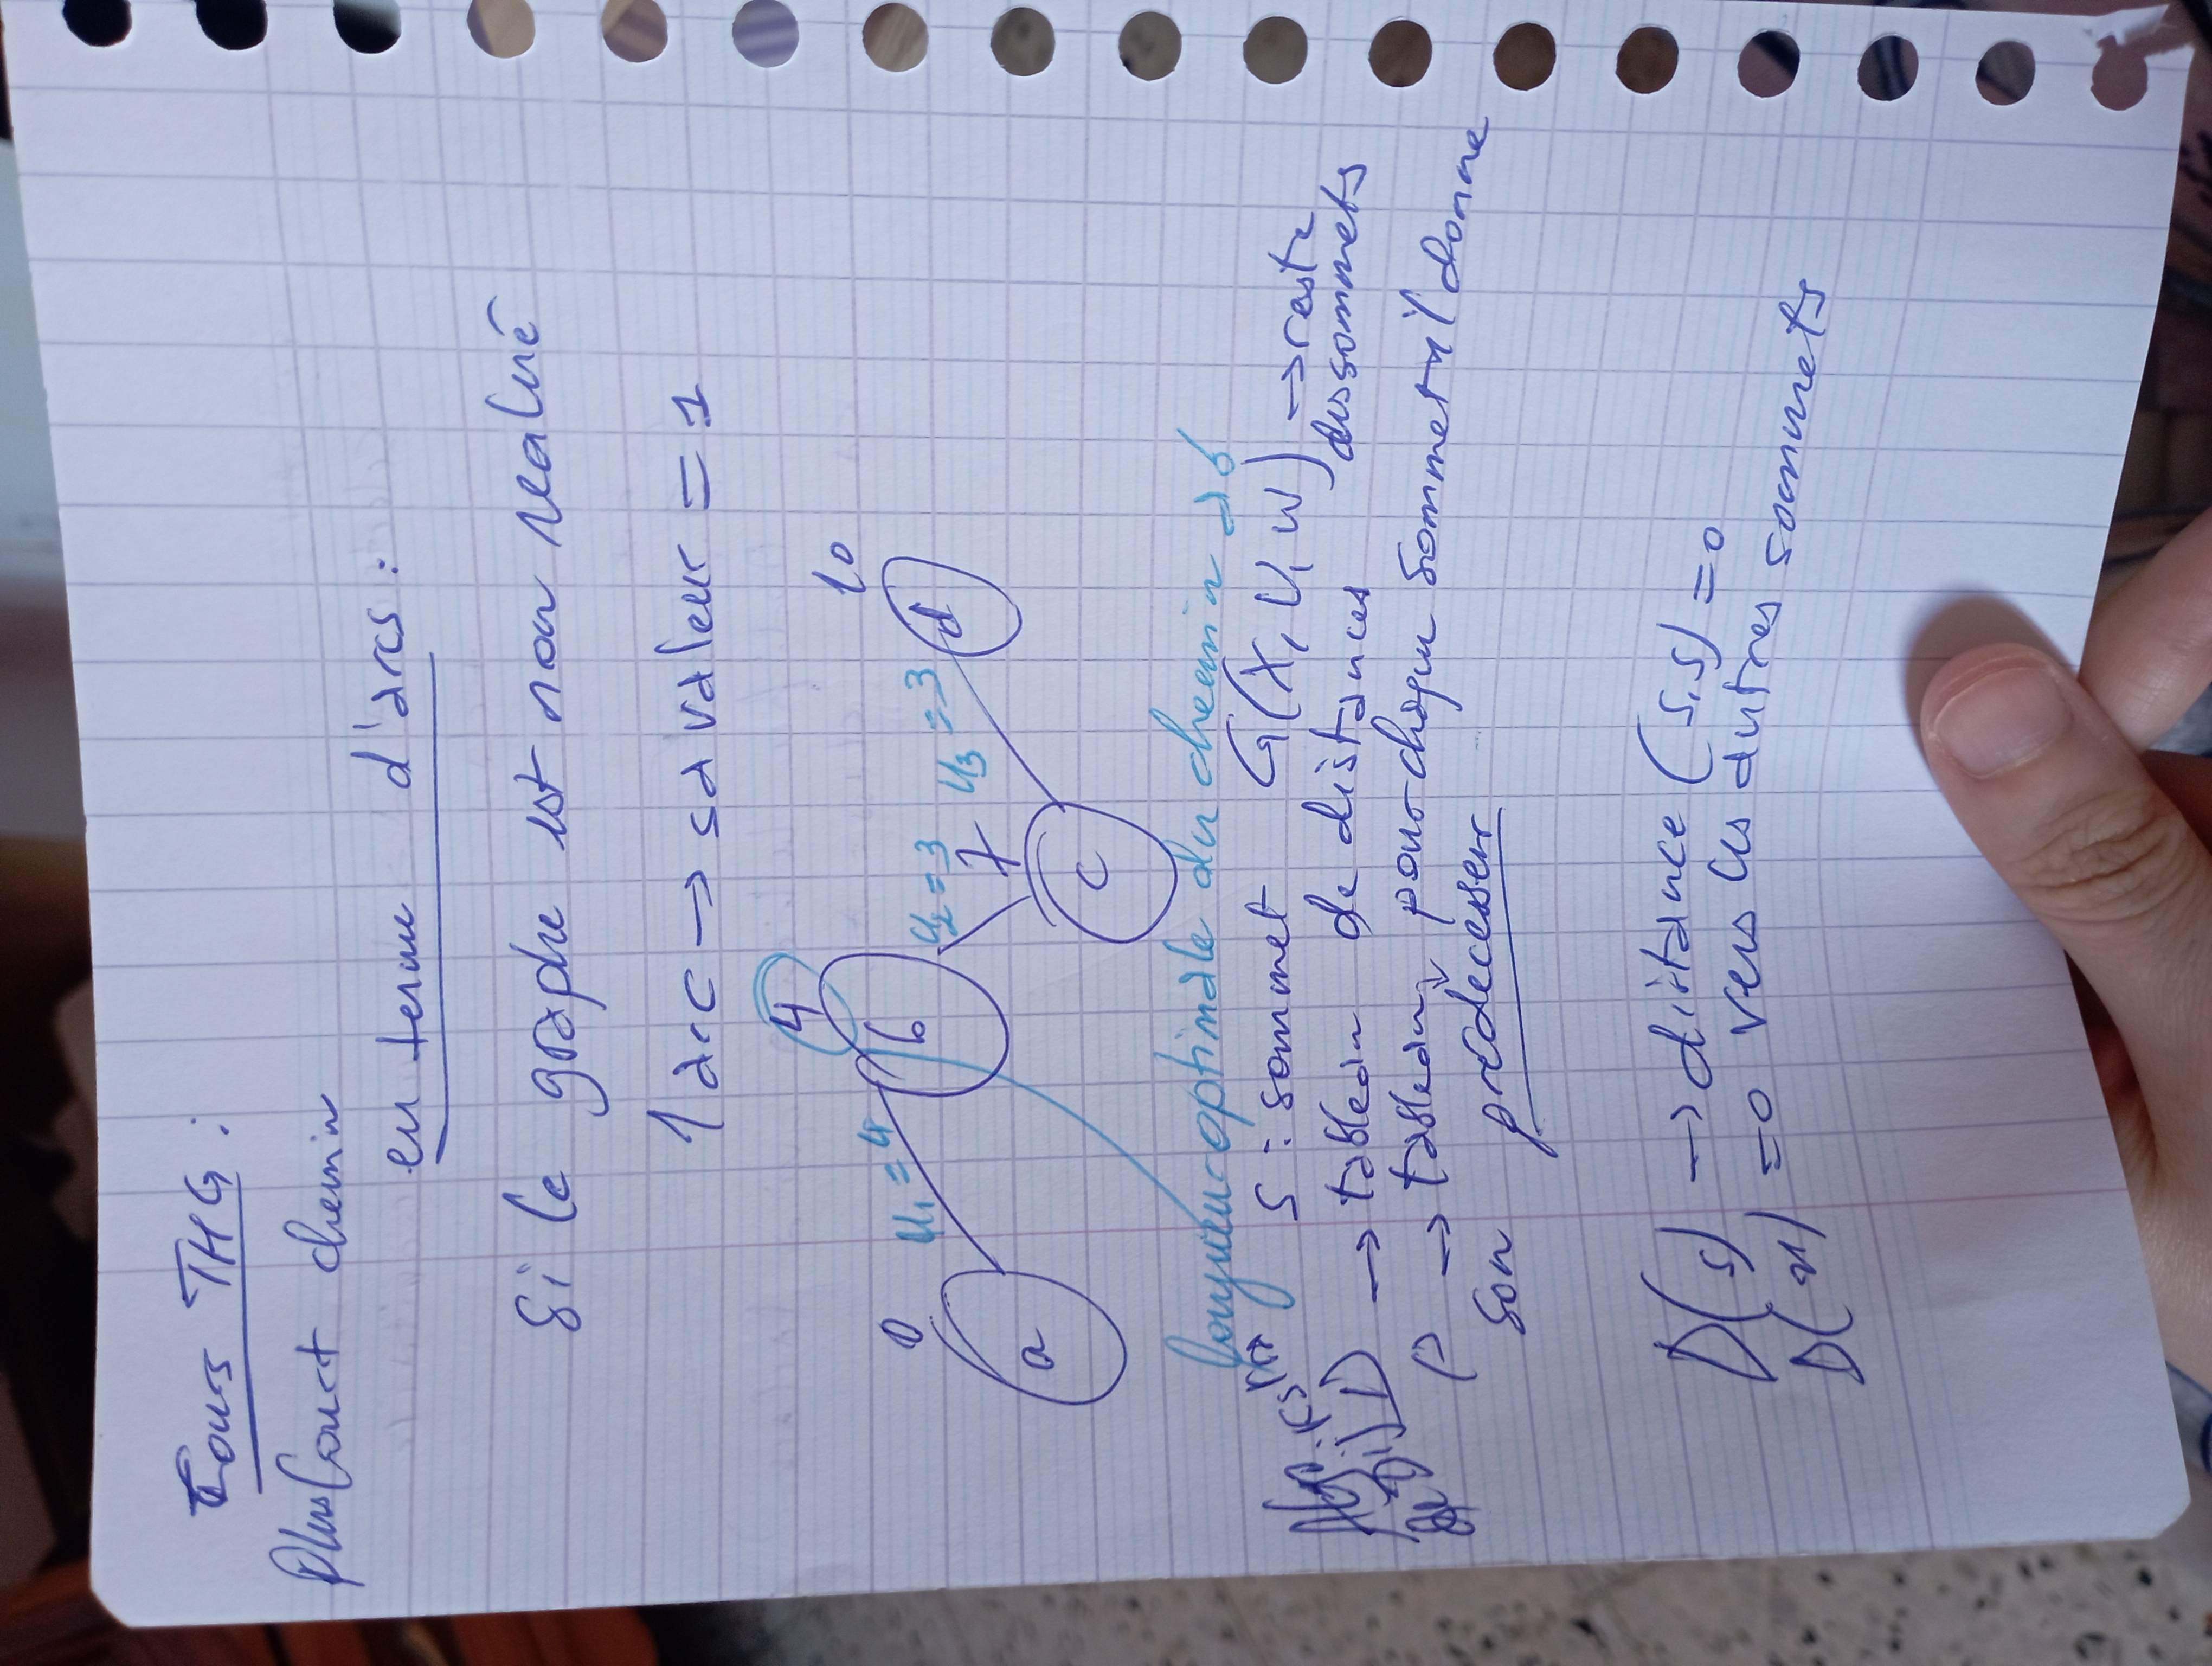 Cours THG :
Plus Court chemin
en terme d'arcs :
Si le graphe est non
1 arc → sa valeur = 1
4
10
0
u1 = 4
b
u2 = 3
u3 = 3
d
7
a
c
longueur optimale du chemin ab
Algo
de Dijkstra
S : sommet G(X, U, W) → reste
des sommets
D → tableau de distances
P → tableau, pour chaque sommet il donne
son prédecesseur
D(s) → distance (s,s) = 0
D(x) = 0 vers les autres sommets